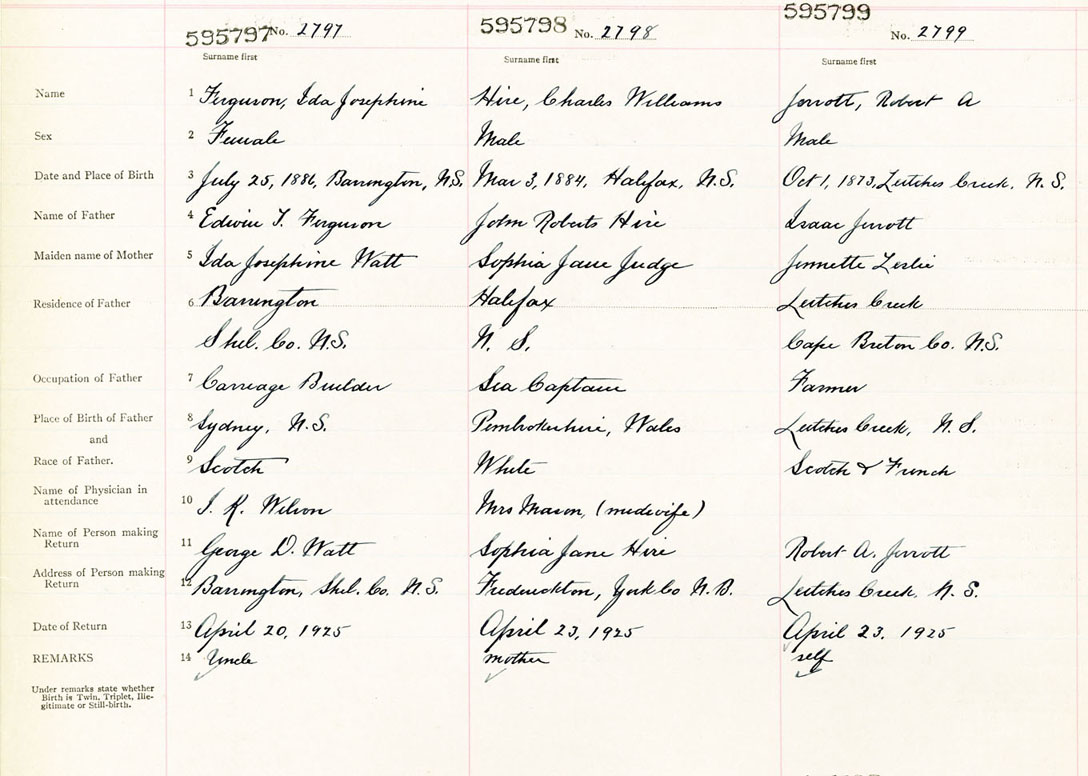 595797 No. 2797 595798 No. 2798 595799 No. 2799
Surname first Surname first Surname first
Name 1 Ferguson, Ida Josephine Hire, Charles Williams Jerrott, Robert A
Sex 2 Female Male Male
Date and Place of Birth 3 July 25, 1886, Barrington, N.S. Mar 3, 1884, Halifax, N.S. Oct 1, 1873, Leitches Creek, N.S.
Name of Father 4 Edwin T. Ferguson John Roberts Hire Isaac Jerrott
Maiden name of Mother 5 Ida Josephine Watt Sophia Jane Judge Jennette Leslie
Residence of Father 6 Barrington Halifax Leitches Creek
Shel. Co. N.S. N. S. Cape Breton Co. N.S.
Occupation of Father 7 Carriage Builder Sea Captain Farmer
Place of Birth of Father 8 Sydney, N.S. Pembrokeshire, Wales Leitches Creek, N.S.
and
Race of Father. 9 Scotch White Scotch & French
Name of Physician in
attendance 10 I. K. Wilson Mrs Mason, (midwife)
Name of Person making
Return 11 George D. Watt Sophia Jane Hire Robert A. Jerrott
Address of Person making
Return 12 Barrington, Shel. Co. N.S. Fredrickton, York Co N.B. Leitches Creek, N.S.
Date of Return 13 April 20, 1925 April 23, 1925 April 23, 1925
REMARKS 14 Uncle mother self
Under remarks state whether
Birth is Twin, Triplet, Ille-
gitimate or Still-birth.